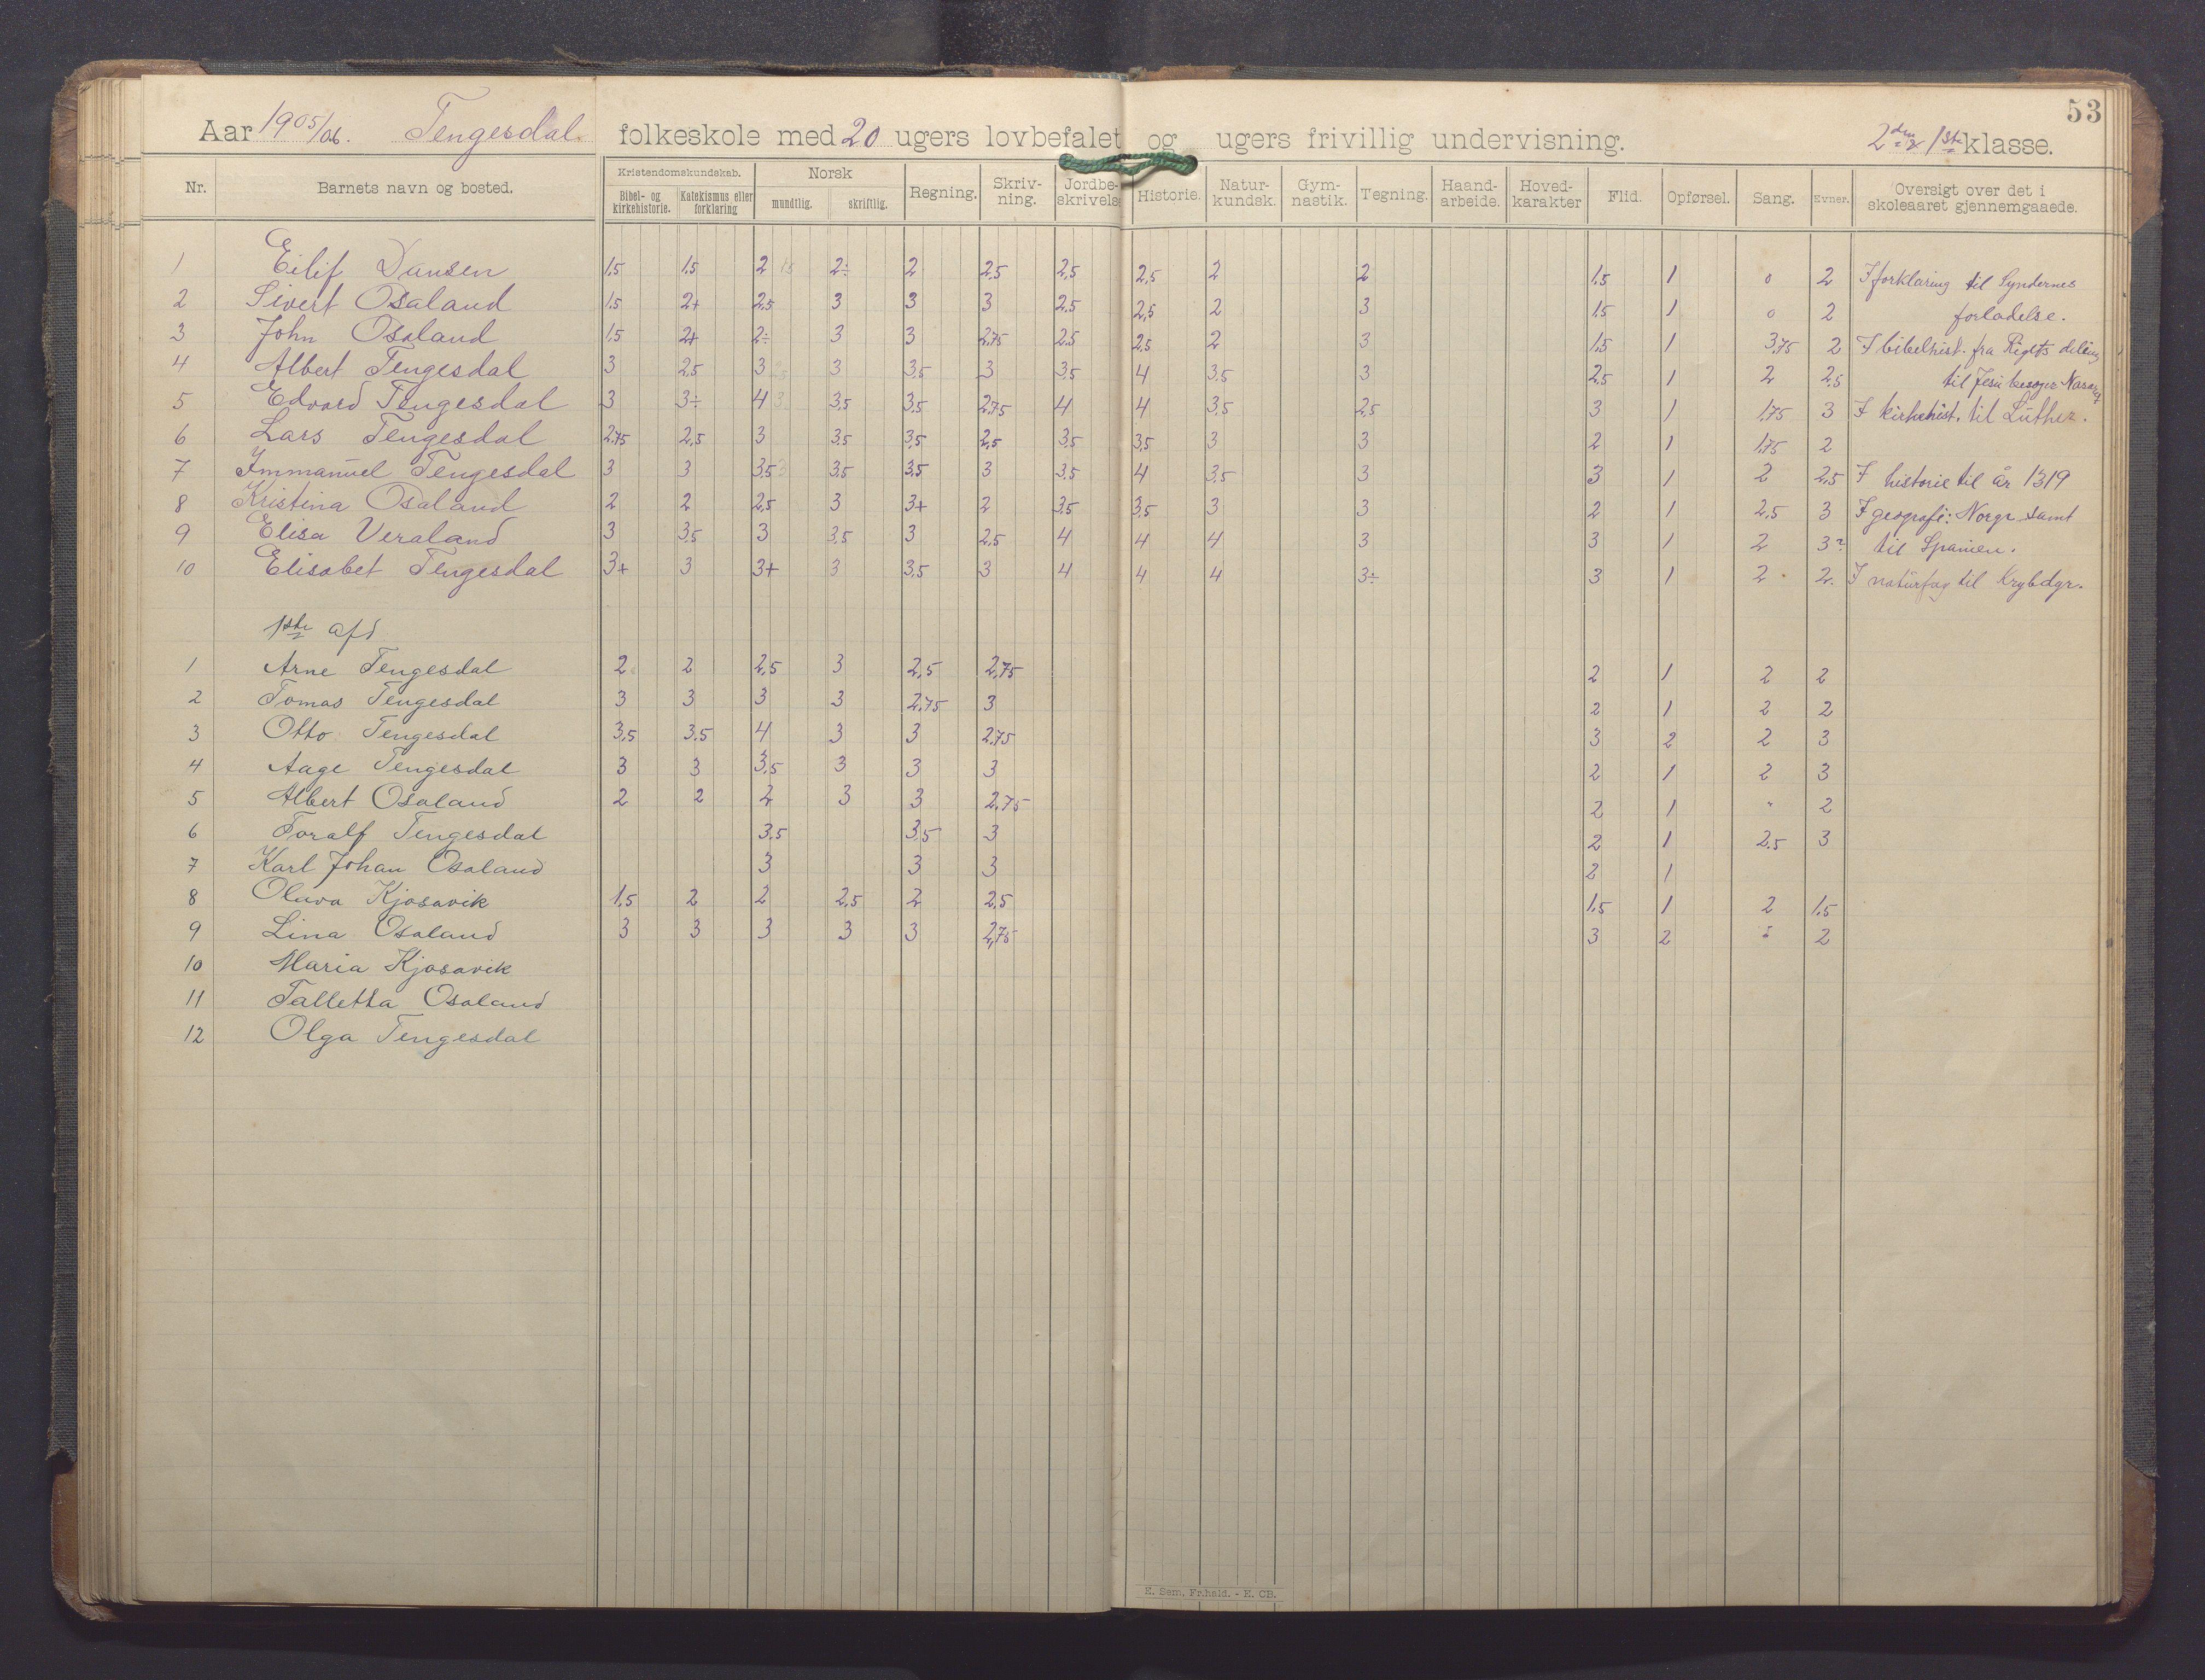 53
Aar 1905/06. Tengesdal folkeskole med 20 ugers lovbefalet og ugers frivillig undervisning. 2den & 1ste klasse.
Nr. Barnets navn og bosted. Kristendomskundskab. Bibel- og kirkehistorie. Katekismus eller forklaring Norsk mundtlig. skriftlig. Regning. Skriv-ning. Jordbe-skrivels Historie. Natur-kundsk. Gym-nastik. Tegning. Haand-arbeide. Hoved-karakter Flid. Opførsel. Sang. Evner. Oversigt over det i skoleaaret gjennemgaaede.
1 Eilif Dansen 1.5 1.5 2 1.5 2÷ 2 2,5 2,5 2,5 2 2 1.5 1 0 2 I forklaring til Syndernes
2 Sivert Osaland 1.5 2+ 2,5 3 3 3 2,5 2,5 2 3 1.5 1 0 2 forladelse.
3 John Osaland 1.5 2+ 2÷ 3 3 2,75 2.5 2,5 2 3 1.5 1 3,75 2 I bibelhist. fra Rigets deling
4 Albert Tengesdal 3 2,5 3 3 3,5 3 3,5 4 3.5 3 2,5 1 2 2,5 til Jesu besøger Nasaret
5 Edvard Tengesdal 3 3÷ 4 3 3,5 3,5 2,75 4 4 3,5 2,5 3 1 1,75 3 I kirkehist. til Luther.
6 Lars Tengesdal 2.75 2,5 3 3,5 3,5 2,5 3,5 3,5 3 3 2 1 1,75 2
7 Immanuel Tengesdal 3 3 3,5 3 3,5 3,5 3 3,5 4 3,5 3 3 1 2 2,5 I historie til år 1319
8 Kristina Osaland 2 2 2,5 3 3+ 2 3,5 3,5 3 3 2 1 2,5 3 I geografi: Norge samt
9 Elisa Veraland 3 3,5 3 3,5 3 2,5 4 4 4 3 3 1 2 3? til Spanien.
10 Elisabet Tengesdal 3+ 3 3+ 3 3,5 3 4 4 4 3÷ 3 1 2 2. I naturfag til Krybdyr.
1ste afd
1 Arne Tengesdal 2 2 2,5 3 2,5 2,75 2 1 2 2
2 Tomas Tengesdal 3 3 3 3 2,75 3 2 1 2 2
3 Otto Tengesdal 3,5 3.5 4 3 3 2,75 3 2 2 3
4 Aage Tengesdal 3 3 3,5 3 3 3 2 1 2 3
5 Albert Osaland 2 2 2 3 3 2,75 2 1 " 2
6 Toralf Tengesdal 3,5 3,5 3 2 1 2,5 3
7 Karl Johan Osaland 3 3 3 2 1
8 Oluva Kjosavik 1,5 2 2 2,5 2 2,5 1,5 1 2 1,5
9 Lina Osaland 3 3 3 3 3 2,75 3 2 2
10 Maria Kjosavik
11 Talletta Osaland
12 Olga Tengesdal
E. Sem. Fr.hald. - E. CB.